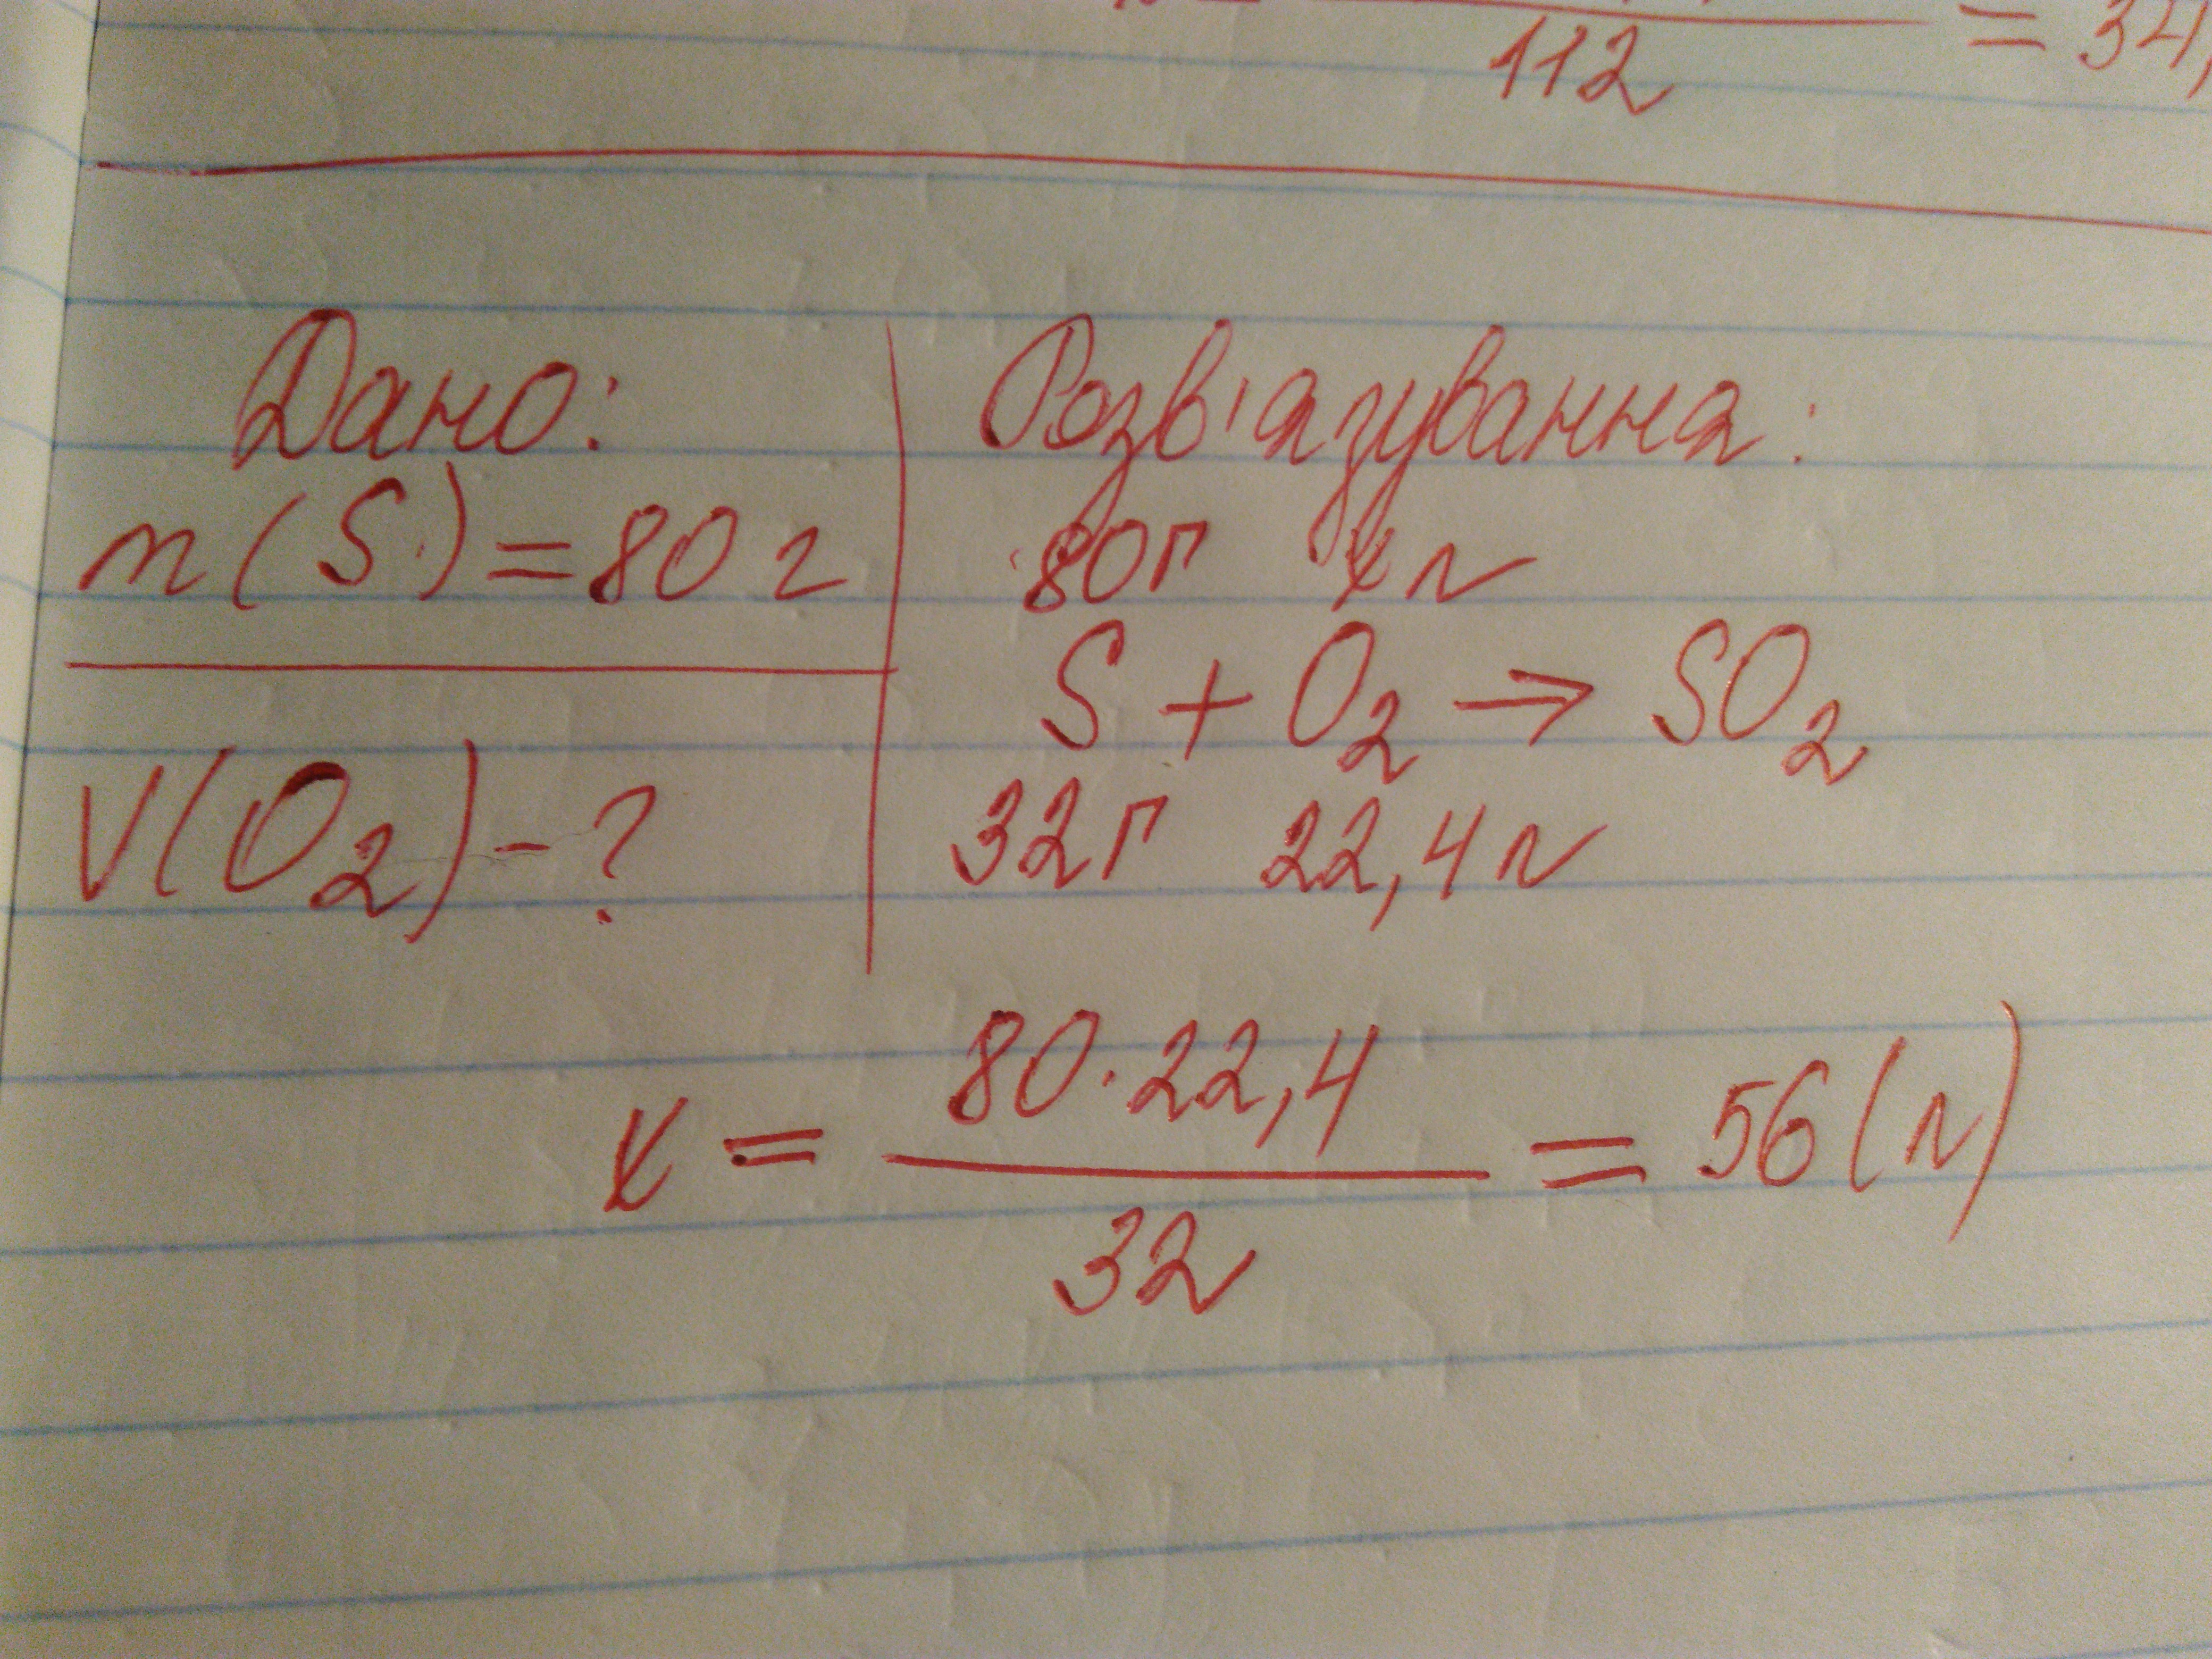 112 = 34,
Дано:
m(S) = 80 г
V(O₂) - ?
Розв'язування:
80г x л
S + O₂ → SO₂
32г 22,4 л
x = 80·22,4 / 32 = 56 (л)